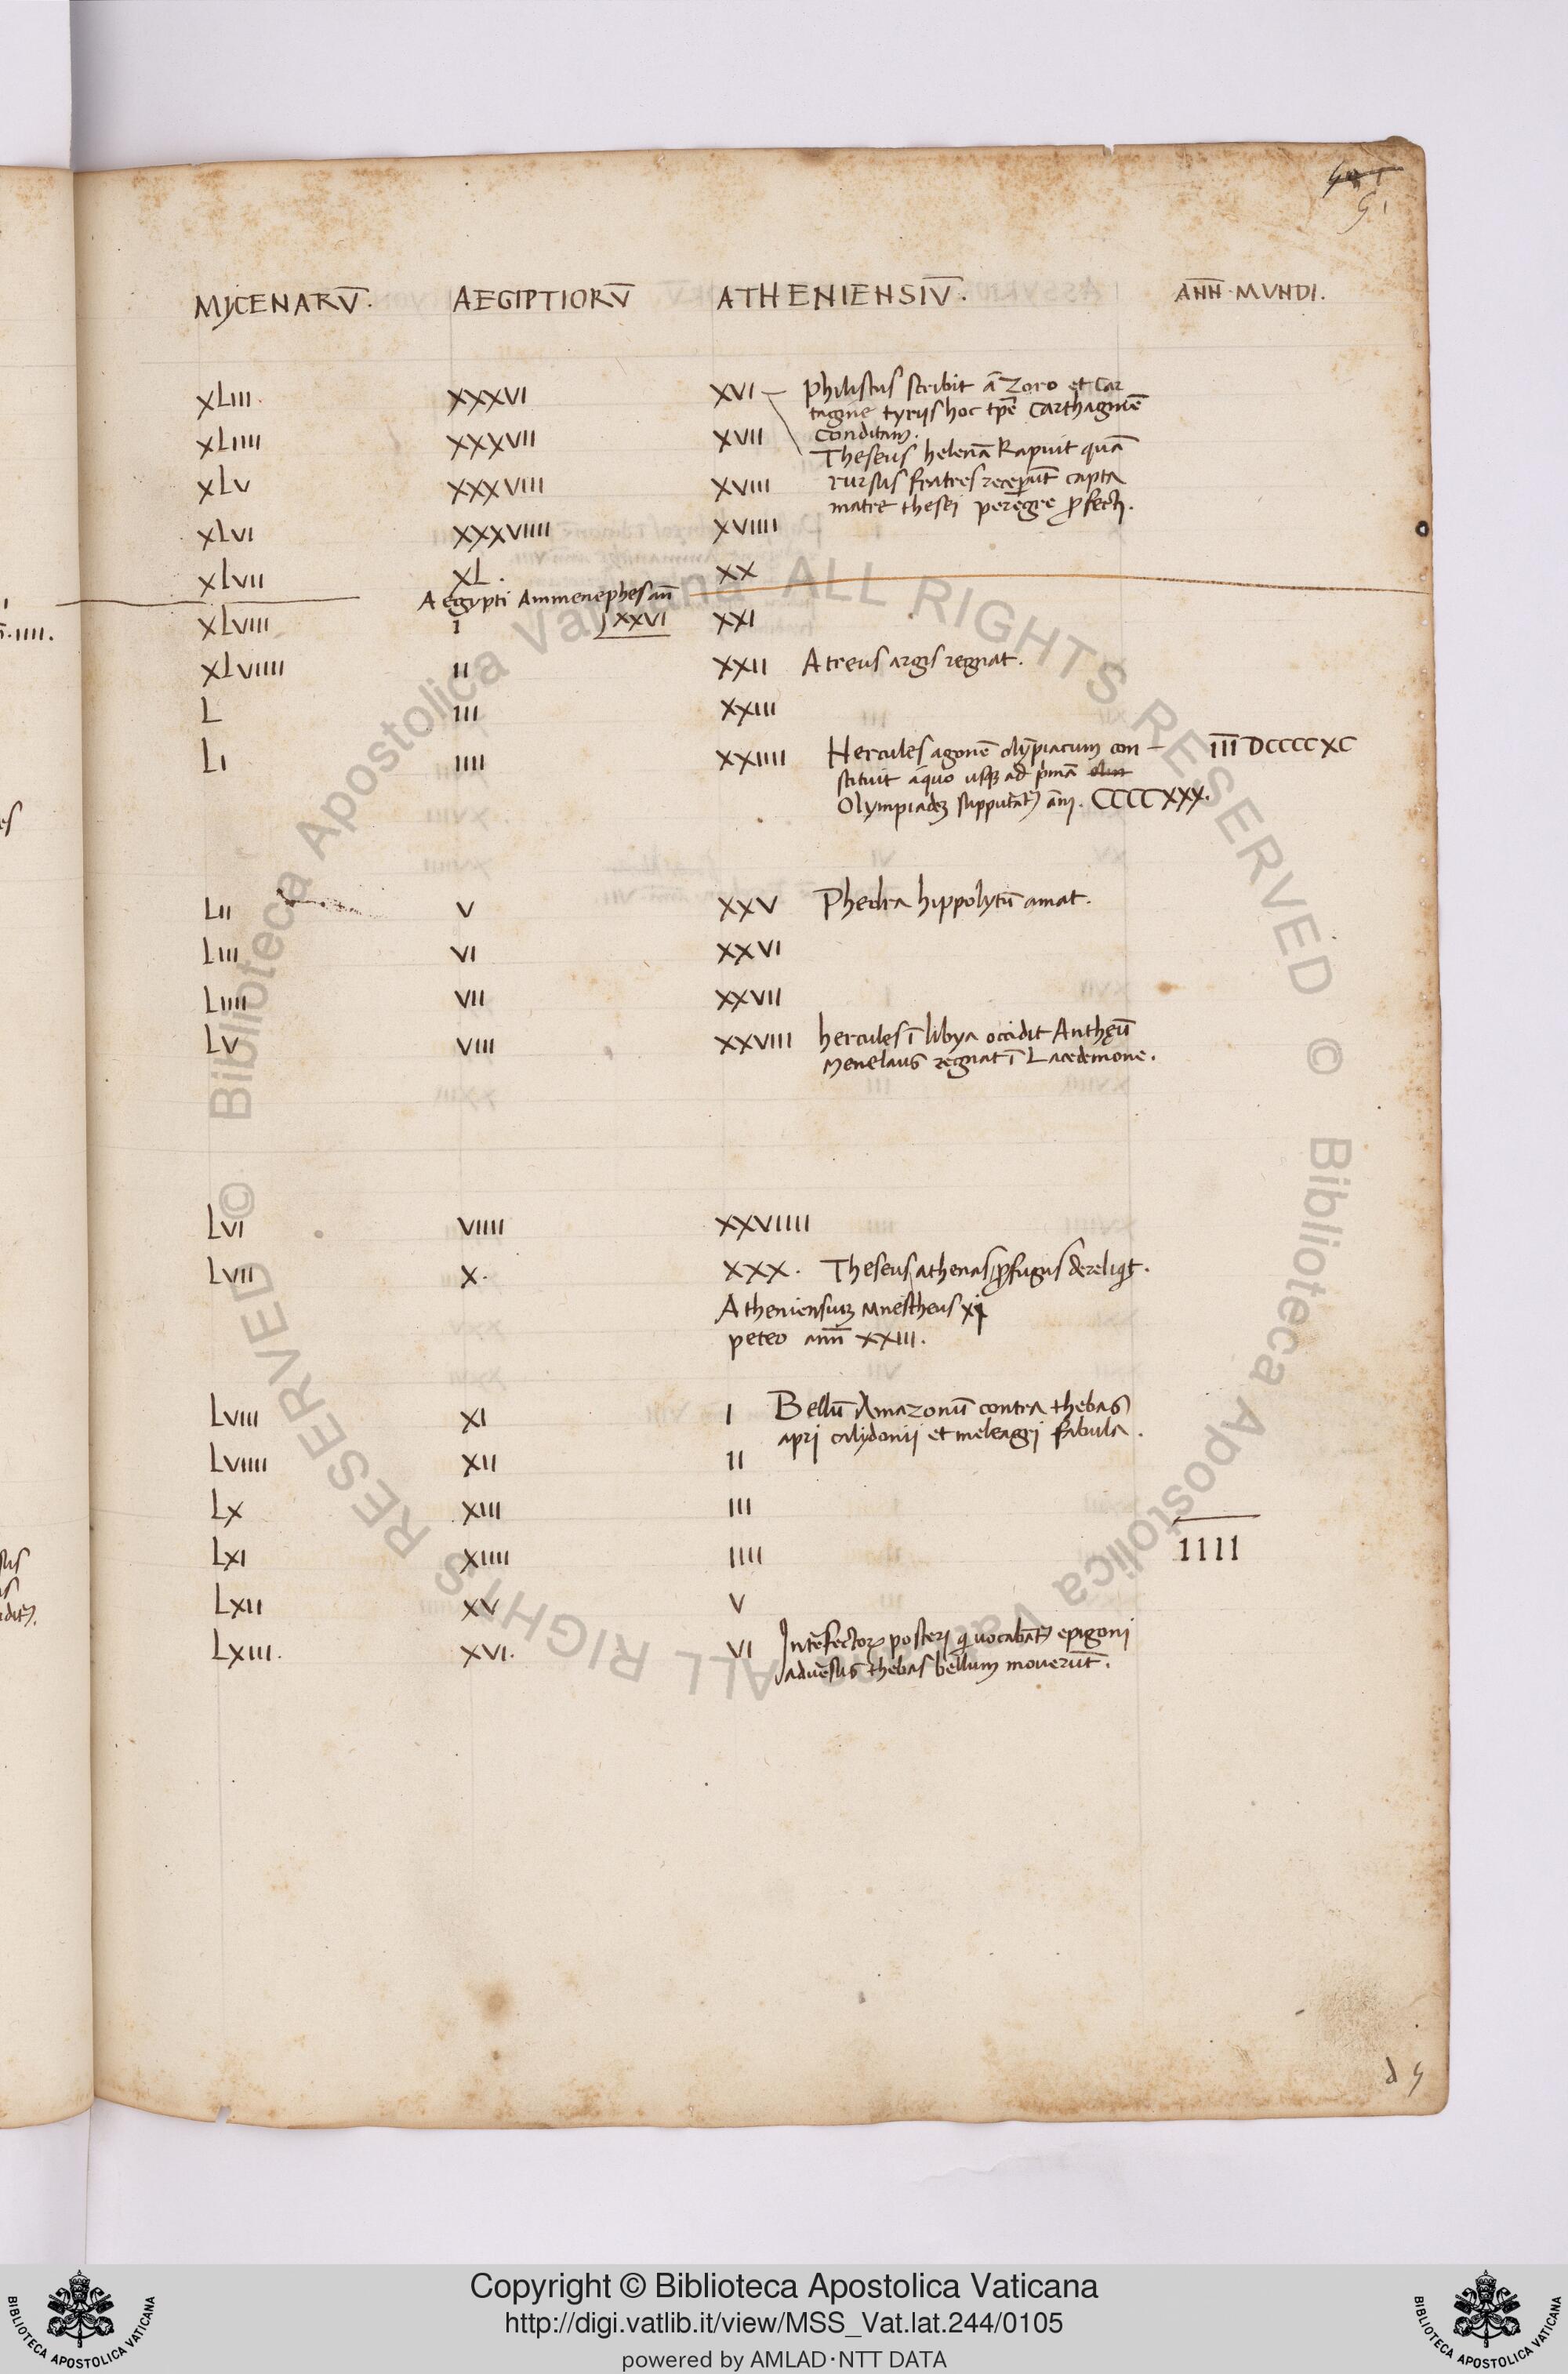 51
MYCENARV̅. AEGIPTIORV̅ ATHENIENSIV̅. AN̅N̅. MVNDI.
XLIII. XXXVI XVI Philistus scribit ā Zoro et Car
tagine tyrijs hoc tp̄e Carthaginē
XLIIII XXXVII XVII Conditam.
Theseus helenā Rapuit quā
XLV XXXVIII XVIII rursus fratres recepūt capta
matre thesei peregre ꝓfecti.
XLVI XXXVIIII XVIIII
XLVII XL. XX
Aegypti Ammenephes an̄
XLVIII I XXVI XXI
XLVIIII II XXII Atreus argis regnat.
L III XXIII
LI IIII XXIIII Hercules agonē olȳpiacum con- I̅I̅I̅ DCCCCXC
stituit a quo usqꝫ ad pͥmā
Olympiadeꝫ supputat᷒ an̄i. CCCCXXX.
LII V XXV Phedra hippolytū amat.
LIII VI XXVI
LIIII VII XXVII
LV VIII XXVIII hercules ī libya occidit Anthęū
Menelaus regnat ī Lacedemone.
LVI VIIII XXVIIII
LVII X. XXX. Theseus athenas ꝓfugus dereliqͥt.
Atheniensiuꝫ Mnestheus
peteo an̄n̄ XXIII.
LVIII XI I Bellū Amazonū contra thebas
apri calydonii et meleagri fabula.
LVIIII XII II
LX XIII III
LXI XIIII IIII I̅I̅I̅I̅
LXII XV V
LXIII. XVI. VI Intēfectoꝝ posteri qͥ uocabāt᷒ epigoni
aduēsus thebas bellum mouerūt.
d 5
© Biblioteca Apostolica Vaticana ALL RIGHTS RESERVED © Biblioteca Apostolica Vaticana ALL RIGHTS RESERVED
BIBLIOTECA APOSTOLICA VATICANA
Copyright © Biblioteca Apostolica Vaticana
http://digi.vatlib.it/view/MSS_Vat.lat.244/0105
powered by AMLAD·NTT DATA
BIBLIOTECA APOSTOLICA VATICANA